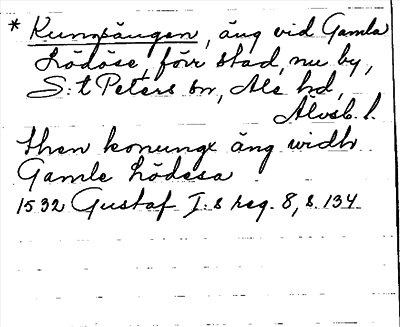 * Kungsängen, äng vid Gamla
Lödöse, förr stad, nu by,
S:t Peters sn, Ale hd,
Älvsb. l.
then konungx äng widh
Gamle Lödesa
1532 Gustaf I:s reg. 8, s. 134.